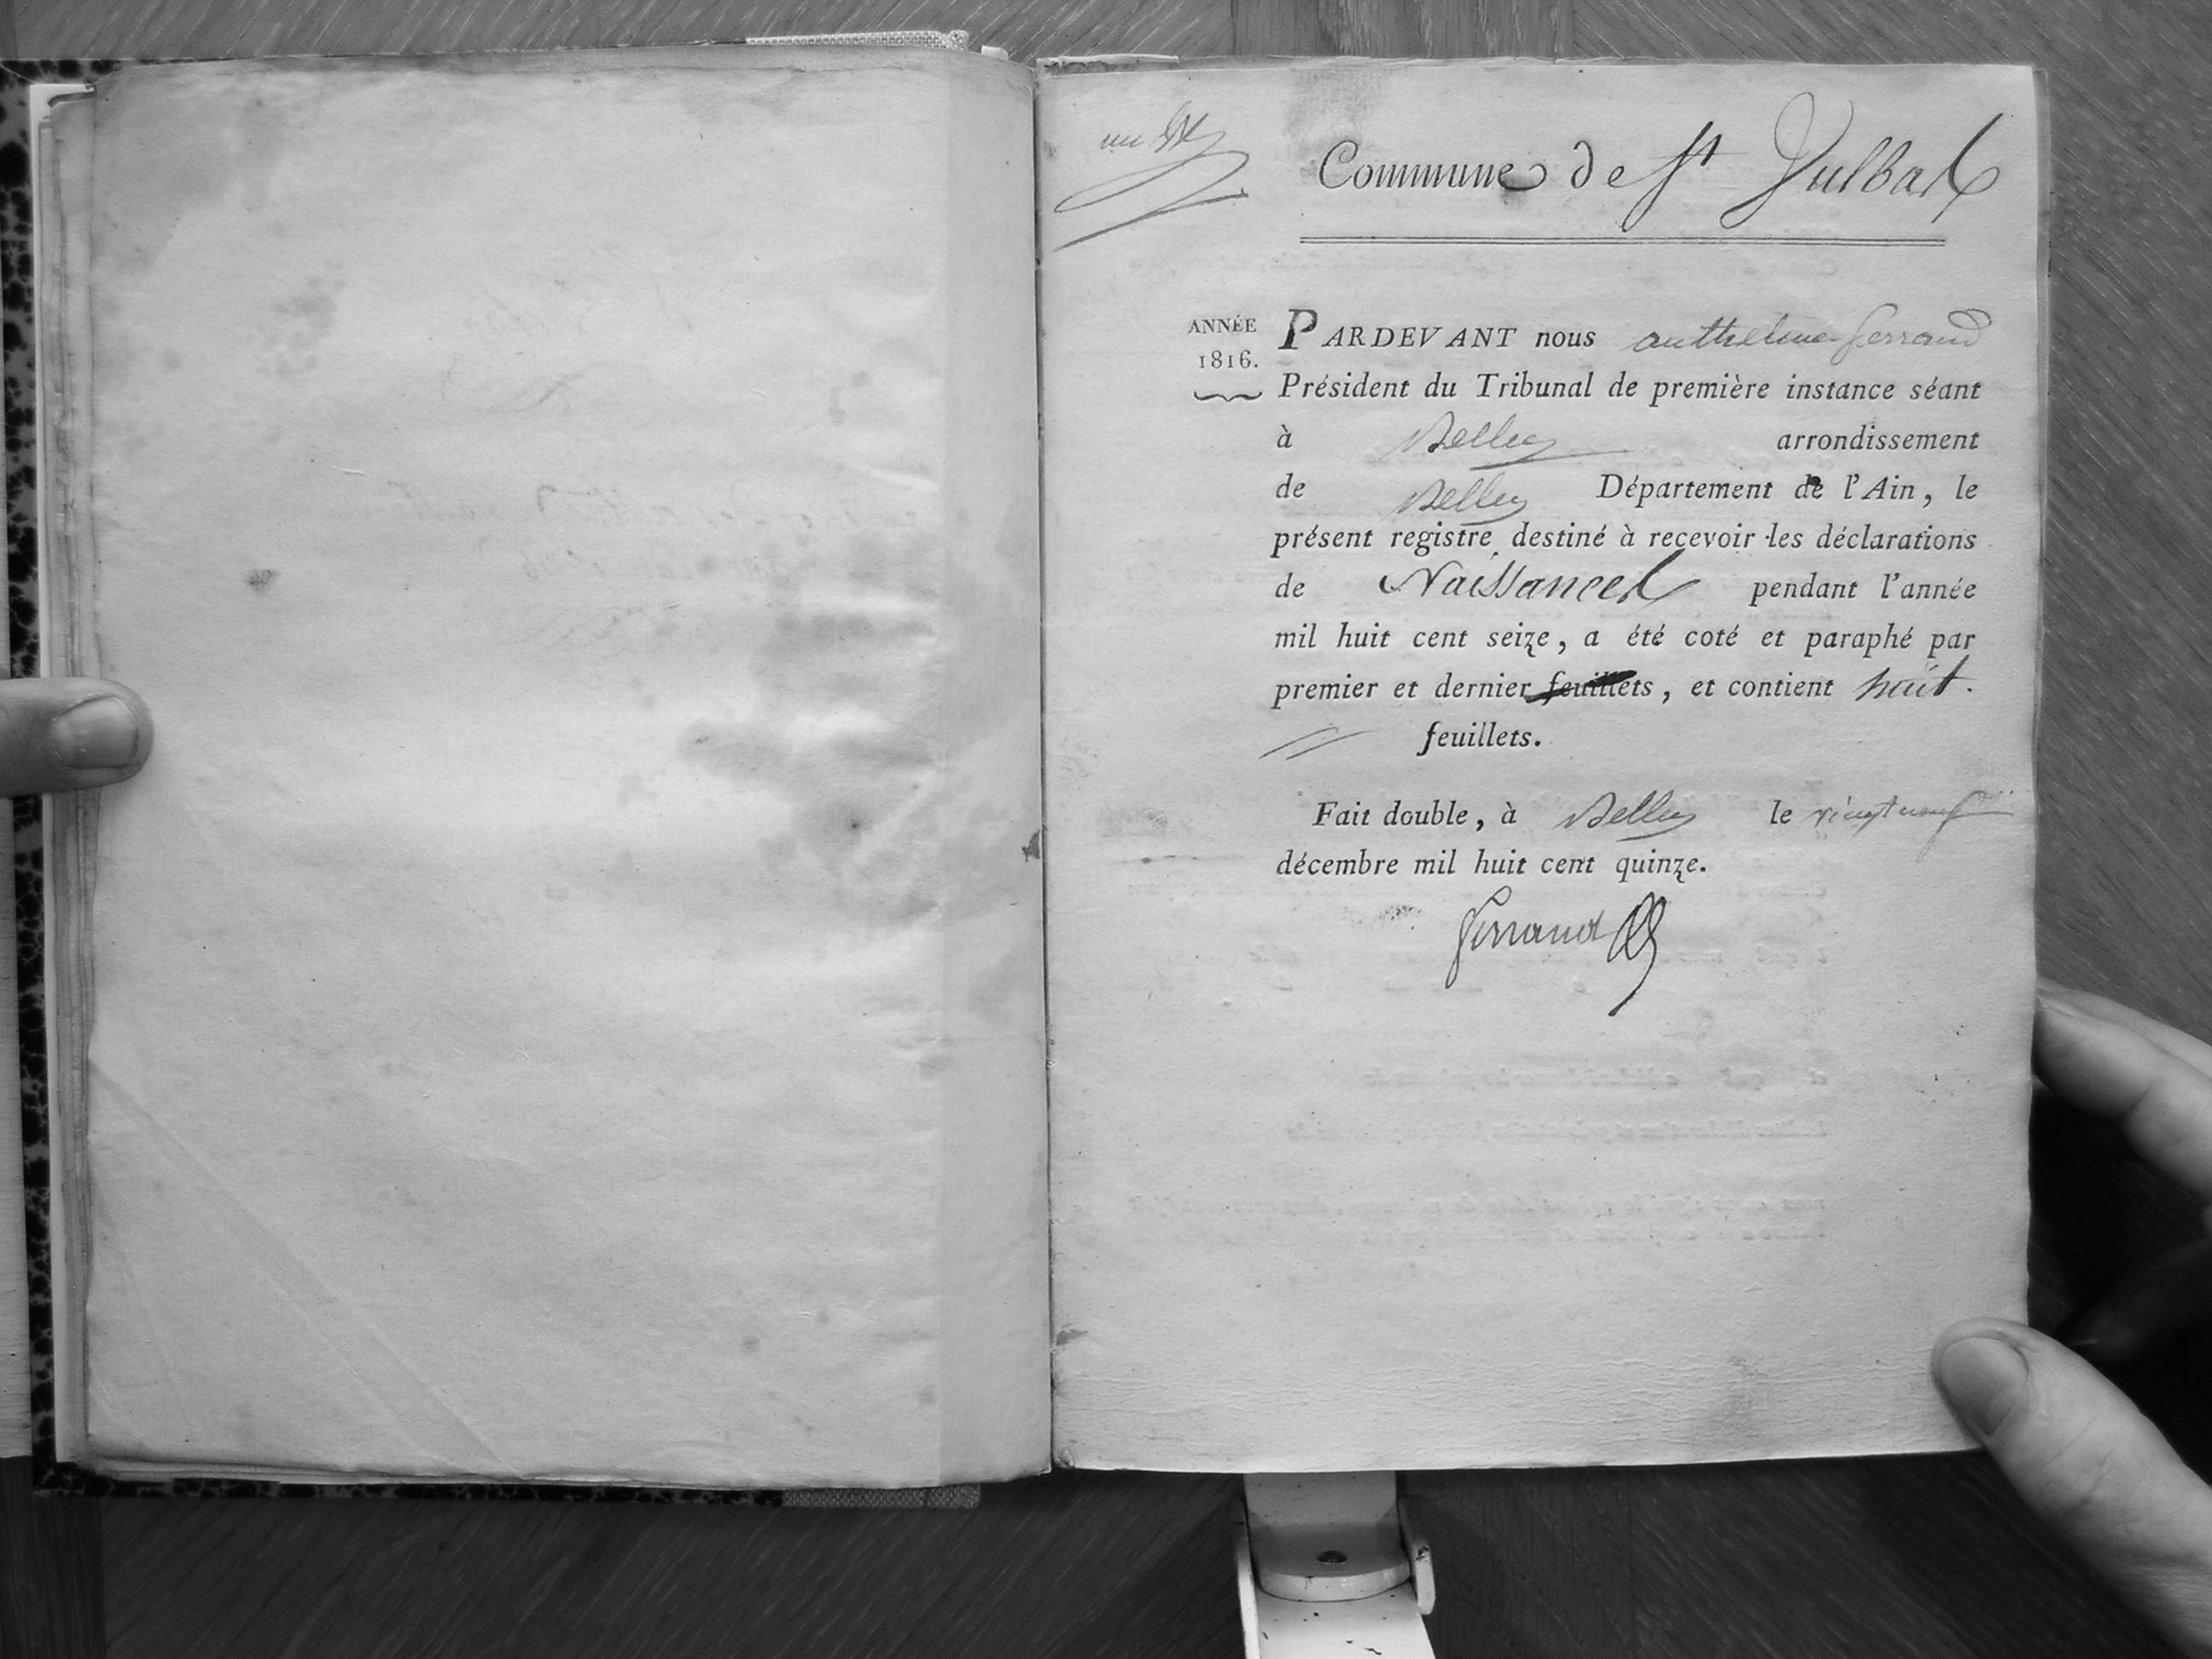 un
Commune de St Vulbas
ANNÉE
1816.
PARDEVANT nous anthelme ferrand
Président du Tribunal de première instance séant
à Belley arrondissement
de Belley Département de l'Ain, le
présent registre, destiné à recevoir les déclarations
de Naissances pendant l'année
mil huit cent seize, a été coté et paraphé par
premier et dernier feuillets, et contient huit.
feuillets.
Fait double, à Belley le vingt neuf
décembre mil huit cent quinze.
Ferrand